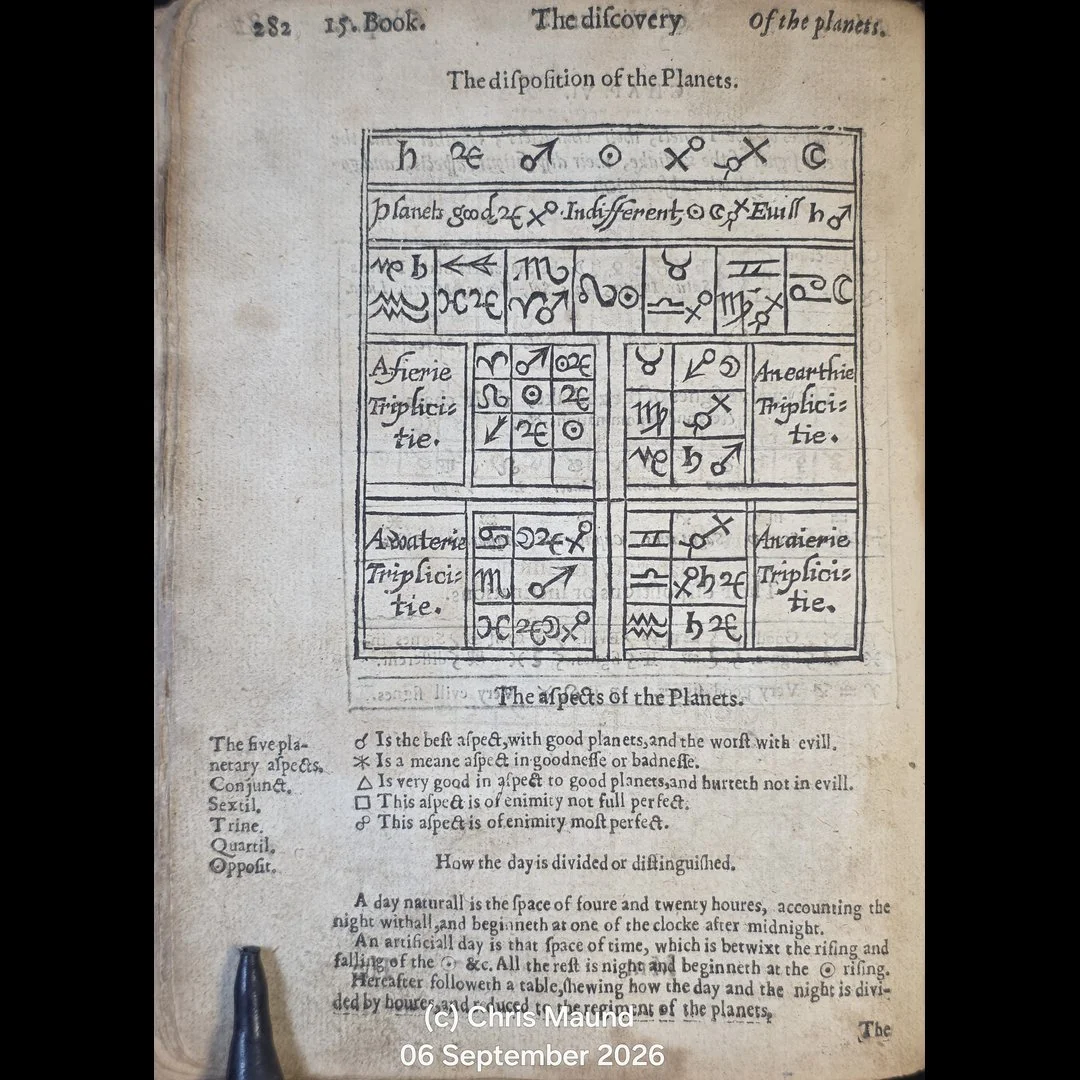 282 15. Book. The diſcovery Of the planets.
The diſpoſition of the Planets.
♄ ♃ ♂ ☉ ♀ ☿ ☾
Planets good, ♃ ♀. Indifferent, ☉ ☾ ☿ Euill ♄ ♂
♑ ♄ ♐ ♏ ♌ ☉ ♉ ♊ ♋ ☾
♒ ♓ ♃ ♈ ♂ ♎ ♀ ♍ ☿
A fierie
Triplici=
tie.
♈ ♂ ☉ ♃
♌ ☉ ♃
♐ ♃ ☉
♉ ♀ ☽
♍ ☿
♑ ♄ ♂
An earthie
Triplici=
tie.
A waterie
Triplici=
tie.
♋ ☽ ♃ ♀
♏ ♂
♓ ♃ ☽ ♀
♊ ☿
♎ ♀ ♄ ♃
♒ ♄ ♃
An aierie
Triplici=
tie.
The aſpects of the Planets.
The five pla-
netary aſpects.
Conjunct.
Sextil.
Trine.
Quartil.
Oppoſit.
☌ Is the beſt aſpect, with good planets, and the worſt with evill.
⚹ Is a meane aſpect in goodneſſe or badneſſe.
△ Is very good in aſpect to good planets, and hurteth not in evill.
□ This aſpect is of enimity not full perfect.
☍ This aſpect is of enimity moſt perfect.
How the day is divided or diſtinguiſhed.
A day naturall is the ſpace of foure and twenty houres, accounting the
night withall, and beginneth at one of the clocke after midnight.
An artificiall day is that ſpace of time, which is betwixt the riſing and
falling of the ☉ &c. All the reſt is night and beginneth at the ☉ riſing.
Hereafter followeth a table, ſhewing how the day and the night is divi-
ded by houres, and reduced to the regiment of the planets.
The
(c) Chris Maund
06 September 2026